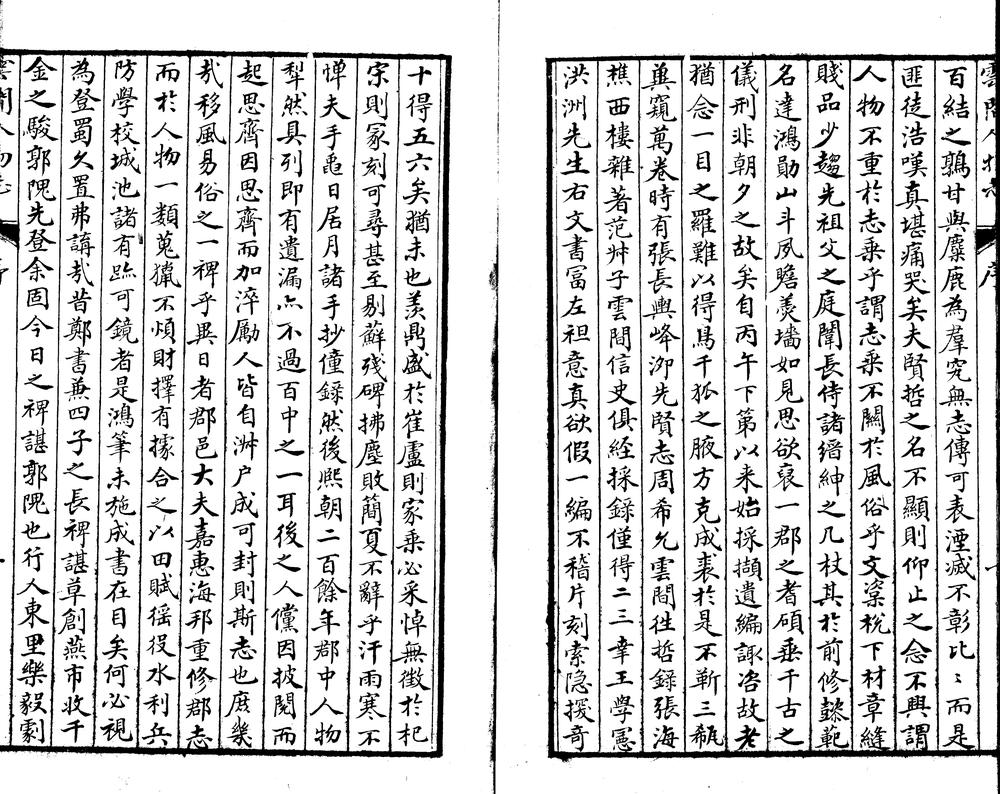 雲間人物志 序
百結之鶉甘與麋鹿為羣究無志傳可表湮滅不彰比〻而是
匪徒浩嘆真堪痛哭矣夫賢哲之名不顯則仰止之念不興謂
人物不重於志乘乎謂志乘不關於風俗乎文窠梲下材章縫
賤品少趨先祖父之庭闈長侍諸縉紳之几杖其於前修懿範
名達鴻勛山斗夙瞻羮墻如見思欲裒一郡之耆碩垂千古之
儀刑非朝夕之故矣自丙午下第以来始採擷遺編諏咨故老
猶念一目之羅難以得鳥千狐之腋方克成裘於是不靳三瓻
兾窺萬卷時有張長輿峰泖先賢志周希允雲間徃哲錄張海
樵西樓雜著范艸子雲間信史俱経採錄僅得二三幸王學憲
洪洲先生右文書富左袒意真欲假一編不稽片刻索隐援奇
十得五六矣猶未也羡鼎盛於崔盧則家乘必采悼無徴於杞
宋則冢刻可尋甚至剔蘚殘碑拂塵敗簡夏不辭乎汗雨寒不
惮夫手龜日居月諸手抄僮錄然後熈朝二百餘年郡中人物
犁然具列即有遺漏亦不過百中之一耳後之人儻因披閲而
起思齊因思齊而加淬勵人皆自淑户成可封則斯志也庶幾
㢤移風易俗之一裨乎異日者郡邑大夫嘉惠海邦重修郡志
而於人物一類蒐獵不煩財擇有據合之以田賦徭役水利兵
防學校城池諸有跡可鏡者是鴻筆未施成書在目矣何必視
為登蜀久置弗講㢤昔鄭書兼四子之長裨諶草創燕市收千
金之駿郭隗先登余固今日之裨諶郭隗也行人東里樂毅劇
雲間人物志 序